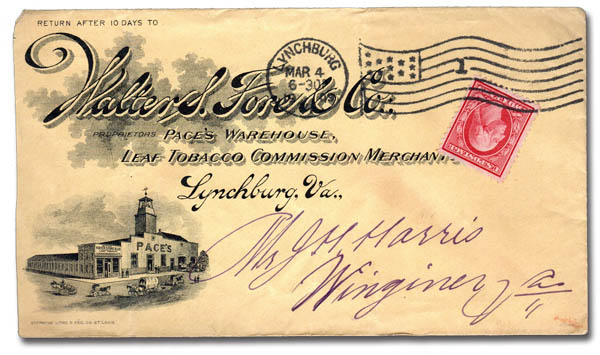 RETURN AFTER 10 DAYS TO
Walter S. Fore & Co.,
PROPRIETORS PACE'S WAREHOUSE,
LEAF TOBACCO COMMISSION MERCHAN
Lynchburg, Va.,
LYNCHBURG
MAR 4
6-30
1
PACE'S
Mr J H Harris
Winginer Va